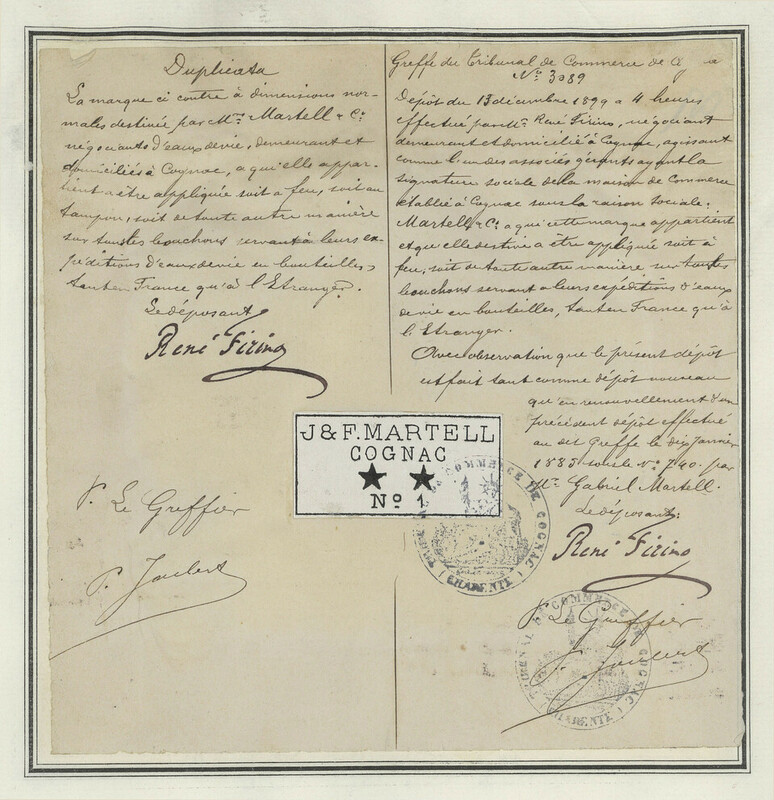 Duplicata
La marque ci contre à dimensions nor-
males destinée par Mrs Martell & Co
négociants d'eaux de vie, demeurant et
domiciliés à Cognac, a qu'elle appar-
tient a être appliquée soit a feu, soit au
tampon, soit de toute autre manière
sur tous les bouchons servant à leurs ex-
péditions d'eaux de vie en bouteilles,
tant en France qu'à l'Etranger.
Le déposant
René Firino
P. Le Greffier
P. Joubert
Greffe du Tribunal de Commerce de
No 3089
Dépôt du 13 décembre 1899 a 4 heures
effectué par Mr René Firino, négociant
demeurant et domicilié à Cognac, agissant
comme l'un des associés gérants ayant la
signature sociale de la maison de Commerce
etablie à Cognac sous la raison sociale:
Martell & Co a qui cette marque appartient
et qu'elle destine a être appliquée soit à
feu, soit de toute autre manière sur tous les
bouchons servant a leurs expéditions d'eaux
de vie en bouteilles, tant en France qu'à
l'Etranger.
Avec observation que le présent dépôt
est fait tant comme dépôt nouveau
qu'en renouvellement d'un
précédent dépôt effectué
au dit Greffe le dix Janvier
1885 sous le No 740 par
Mr Gabriel Martell.
Le déposant:
René Firino
P. Le Greffier
P. Joubert
J & F. MARTELL
COGNAC
★ ★
No 1
TRIBUNAL DE COMMERCE DE COGNAC
(CHARENTE)
TRIBUNAL DE COMMERCE DE COGNAC
(CHARENTE)